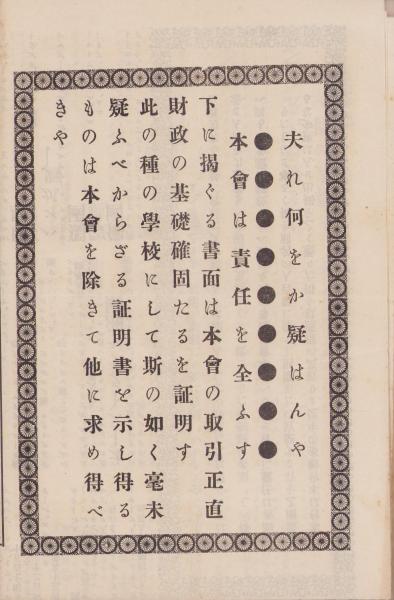 夫れ何をか疑はんや
●●●●●●●●●
本會は責任を全ふす
下に揭ぐる書面は本會の取引正直
財政の基礎確固たるを証明す
此の種の學校にして斯の如く毫末
疑ふべからざる証明書を示し得る
ものは本會を除きて他に求め得べ
きや